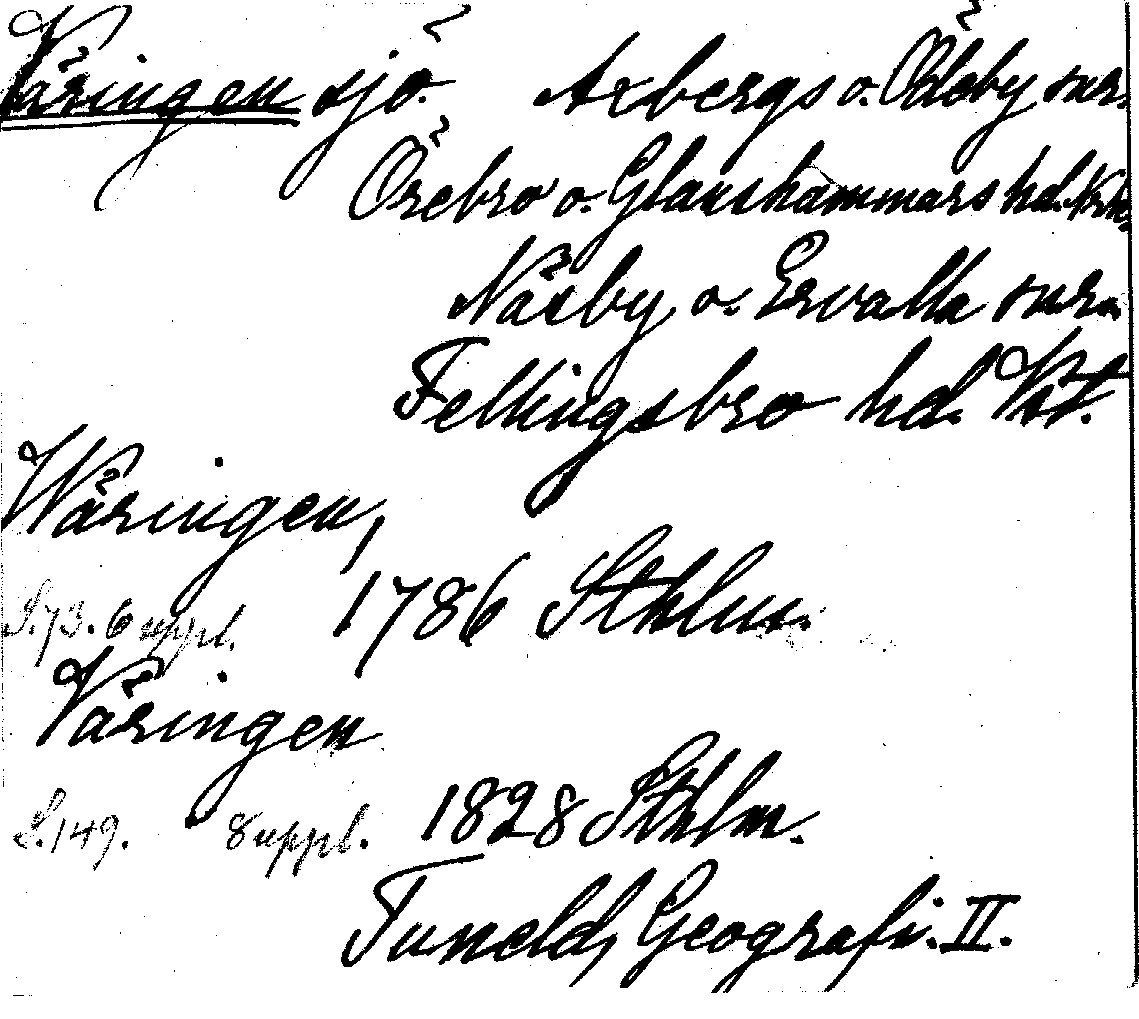 Väringen sjö. Axbergs o. Ödeby snr.
Örebro o. Glanshammars hd. Nrke.
Näsby o. Ervalla snr.
Fellingsbro hd. Vst.
Wäringen,
S. 73. 6 uppl. 1786 Sthlm.
Väringen
S. 149. 8 uppl. 1828 Sthlm.
Tuneld, Geografi. II.